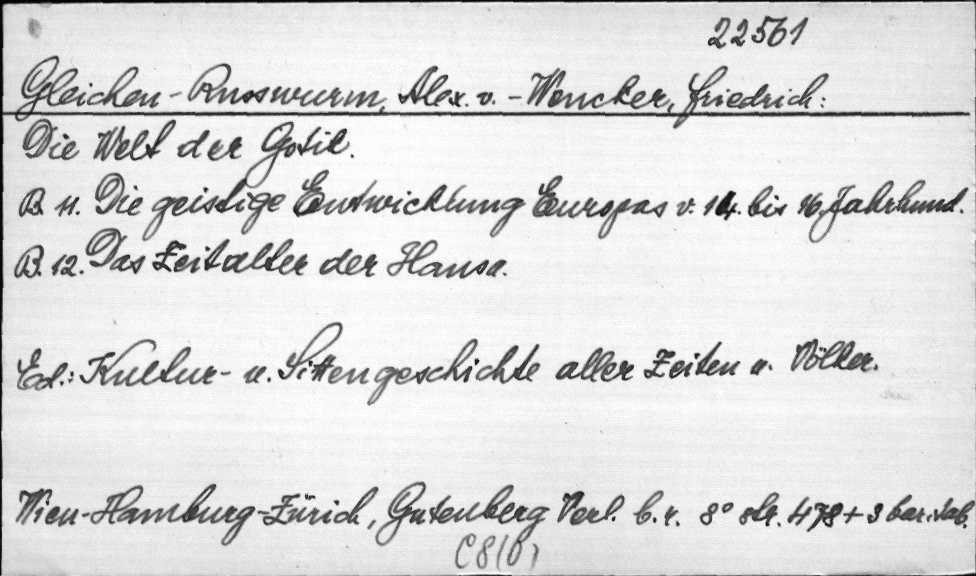 22561
Gleichen-Russwurm, Alex. v. - Wencker, Friedrich:
Die Welt der Gotik.
B. 11. Die geistige Entwicklung Europas v. 14. bis 16. Jahrhund.
B. 12. Das Zeitalter der Hansa.
Ed.: Kultur- u. Sittengeschichte aller Zeiten u. Völker.
Wien-Hamburg-Zürich, Gutenberg Verl. b. r. 8° str. 478 + 3 bar. tab.
C8(0)